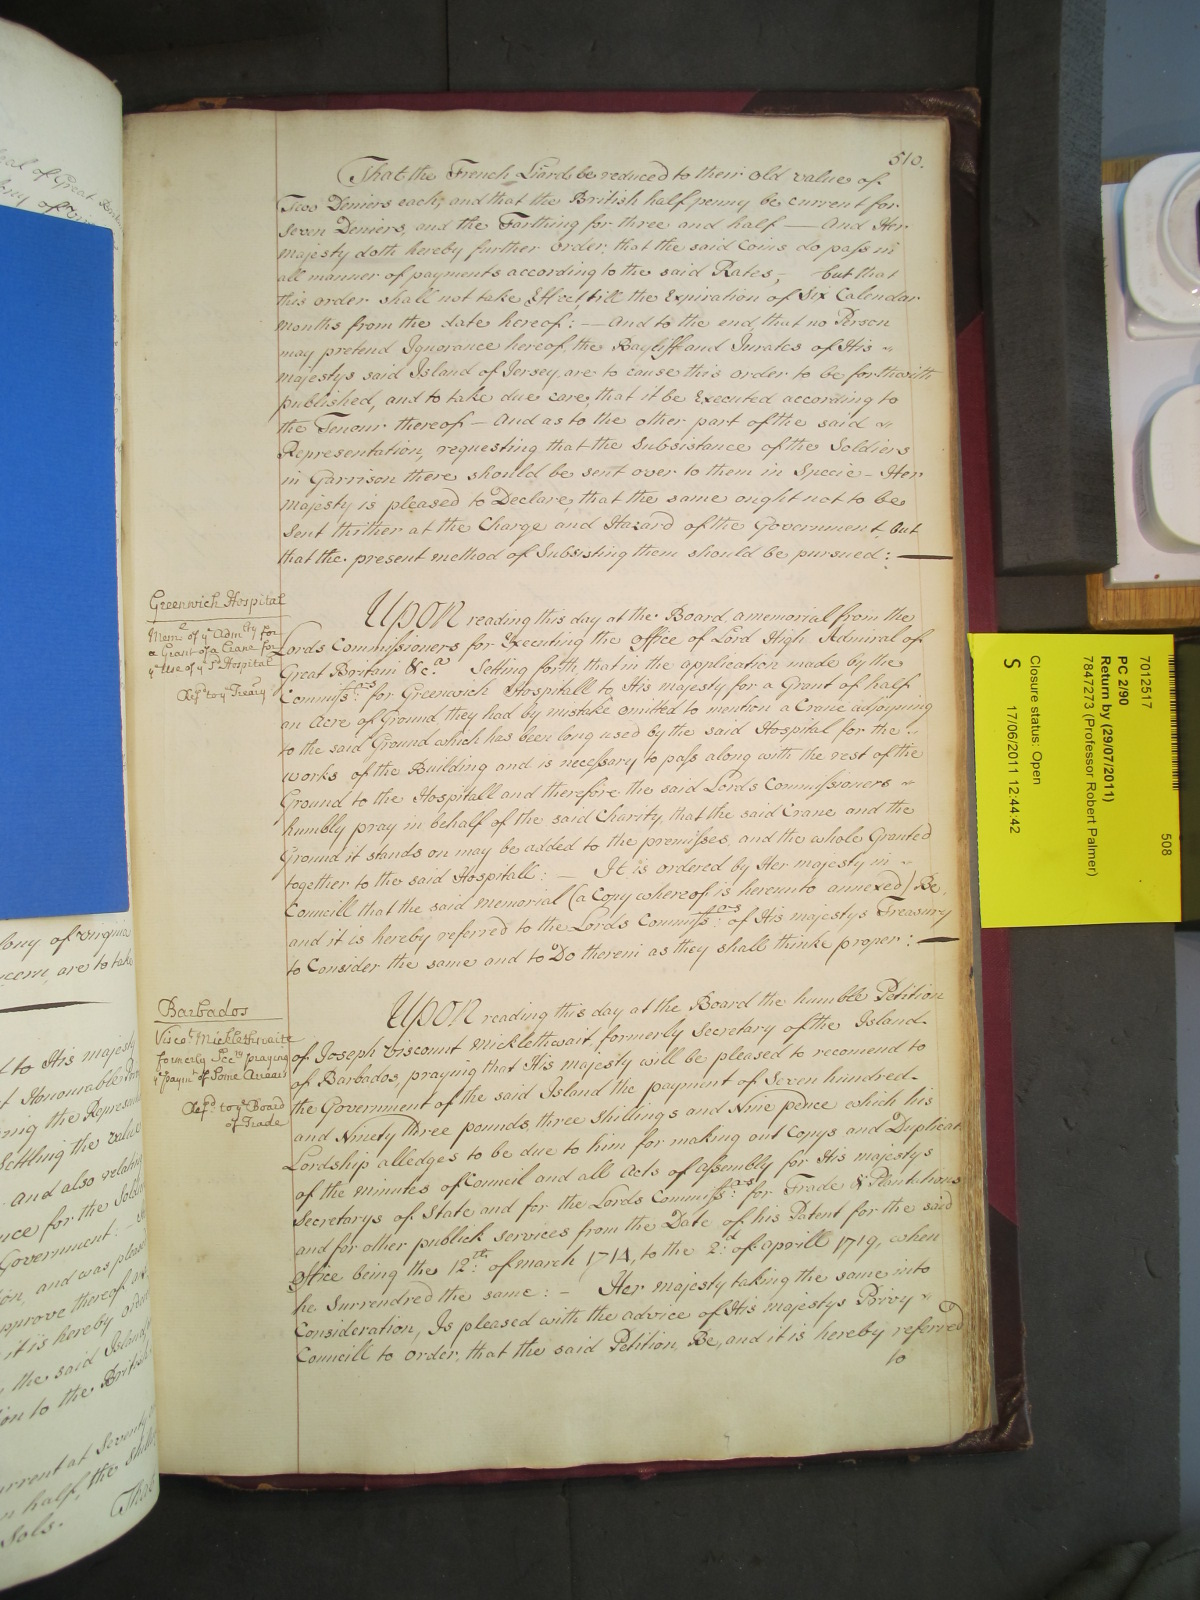 510.
That the French Liards be reduced to their old value of
Two Deniers each, and that the British half penny be current for
Seven Deniers, and the Farthing for three and half — And Her
Majesty doth hereby further order that the said Coins do pass in
all manner of payments according to the said Rates, — but that
this order shall not take Effect till the Expiration of Six Calendar
Months from the date hereof: — And to the end, that no Person
may pretend Ignorance hereof, the Bayliff and Jurates of His
Majestys said Island of Jersey are to cause this order to be forthwith
published, and to take due care, that it be Executed according to
the Tenour thereof — And as to the other part of the said
Representation, requesting that the Subsistance of the Soldiers
in Garrison there should be sent over to them in Specie — Her
Majesty is pleased to Declare, that the same ought not to be
Sent thither at the Charge and Hazard of the Government, but
that the present method of Subsisting them should be pursued: —
Greenwich Hospital
Meml. of ye Admty for
a Grant of a Crane for
ye use of ye sd Hospital
Refd to ye Treary
Upon reading this day at the Board, a memorial from the
Lords Commissioners for Executing the office of Lord High Admiral of
Great Britain &c.a Setting forth, that in the application made by the
Commissrs: for Greenwich Hospitall to His majesty for a Grant of half
an Acre of Ground, they had by mistake omitted to mention a Crane adjoyning
to the said Ground which has been long used by the said Hospital for the
works of the Building and is necessary to pass along with the rest of the
Ground to the Hospitall and therefore the said Lords Commissioners
humbly pray in behalf of the said Charity, that the said Crane and the
Ground it stands on may be added to the premisses, and the whole Granted
together to the said Hospitall: — It is ordered by Her majesty in
Councill that the said memorial (a Copy whereof is hereunto annexed) Be
and it is hereby referred to the Lords Commissrs: of His majestys Treasury
to Consider the same and to Do therein as they shall thinke proper: —
Barbados
Viscot Micklethwaite
formerly Secry praying
ye paymt of Some Arears
Refd to ye Board
of Trade
Upon reading this day at the Board the humble Petition
of Joseph Viscount Micklethwait, formerly Secretary of the Island
of Barbados, praying that His majesty will be pleased to recomend to
the Government of the said Island the payment of Seven hundred
and Ninety three pounds, three Shillings and Nine pence which his
Lordship alledges to be due to him for making out Copys and Duplicat
of the minutes of Council and all Acts of Assembly for His majestys
Secretarys of State and for the Lords Commissrs: for Trade & Plantations
and for other publick services from the Date of his Patent for the said
Office being the 12th: of March 1714, to the 2d: of Aprill 1719, when
he Surrendred the same: — Her majesty taking the same into
Consideration, Is pleased with the advice of His majestys Privy
Councill to order, that the said Petition, Be, and it is hereby referred
to
7012517
508
PC 2/90
Return by (29/07/2011)
7847273 (Professor Robert Palmer)
Closure status: Open
S
17/06/2011 12:44:42